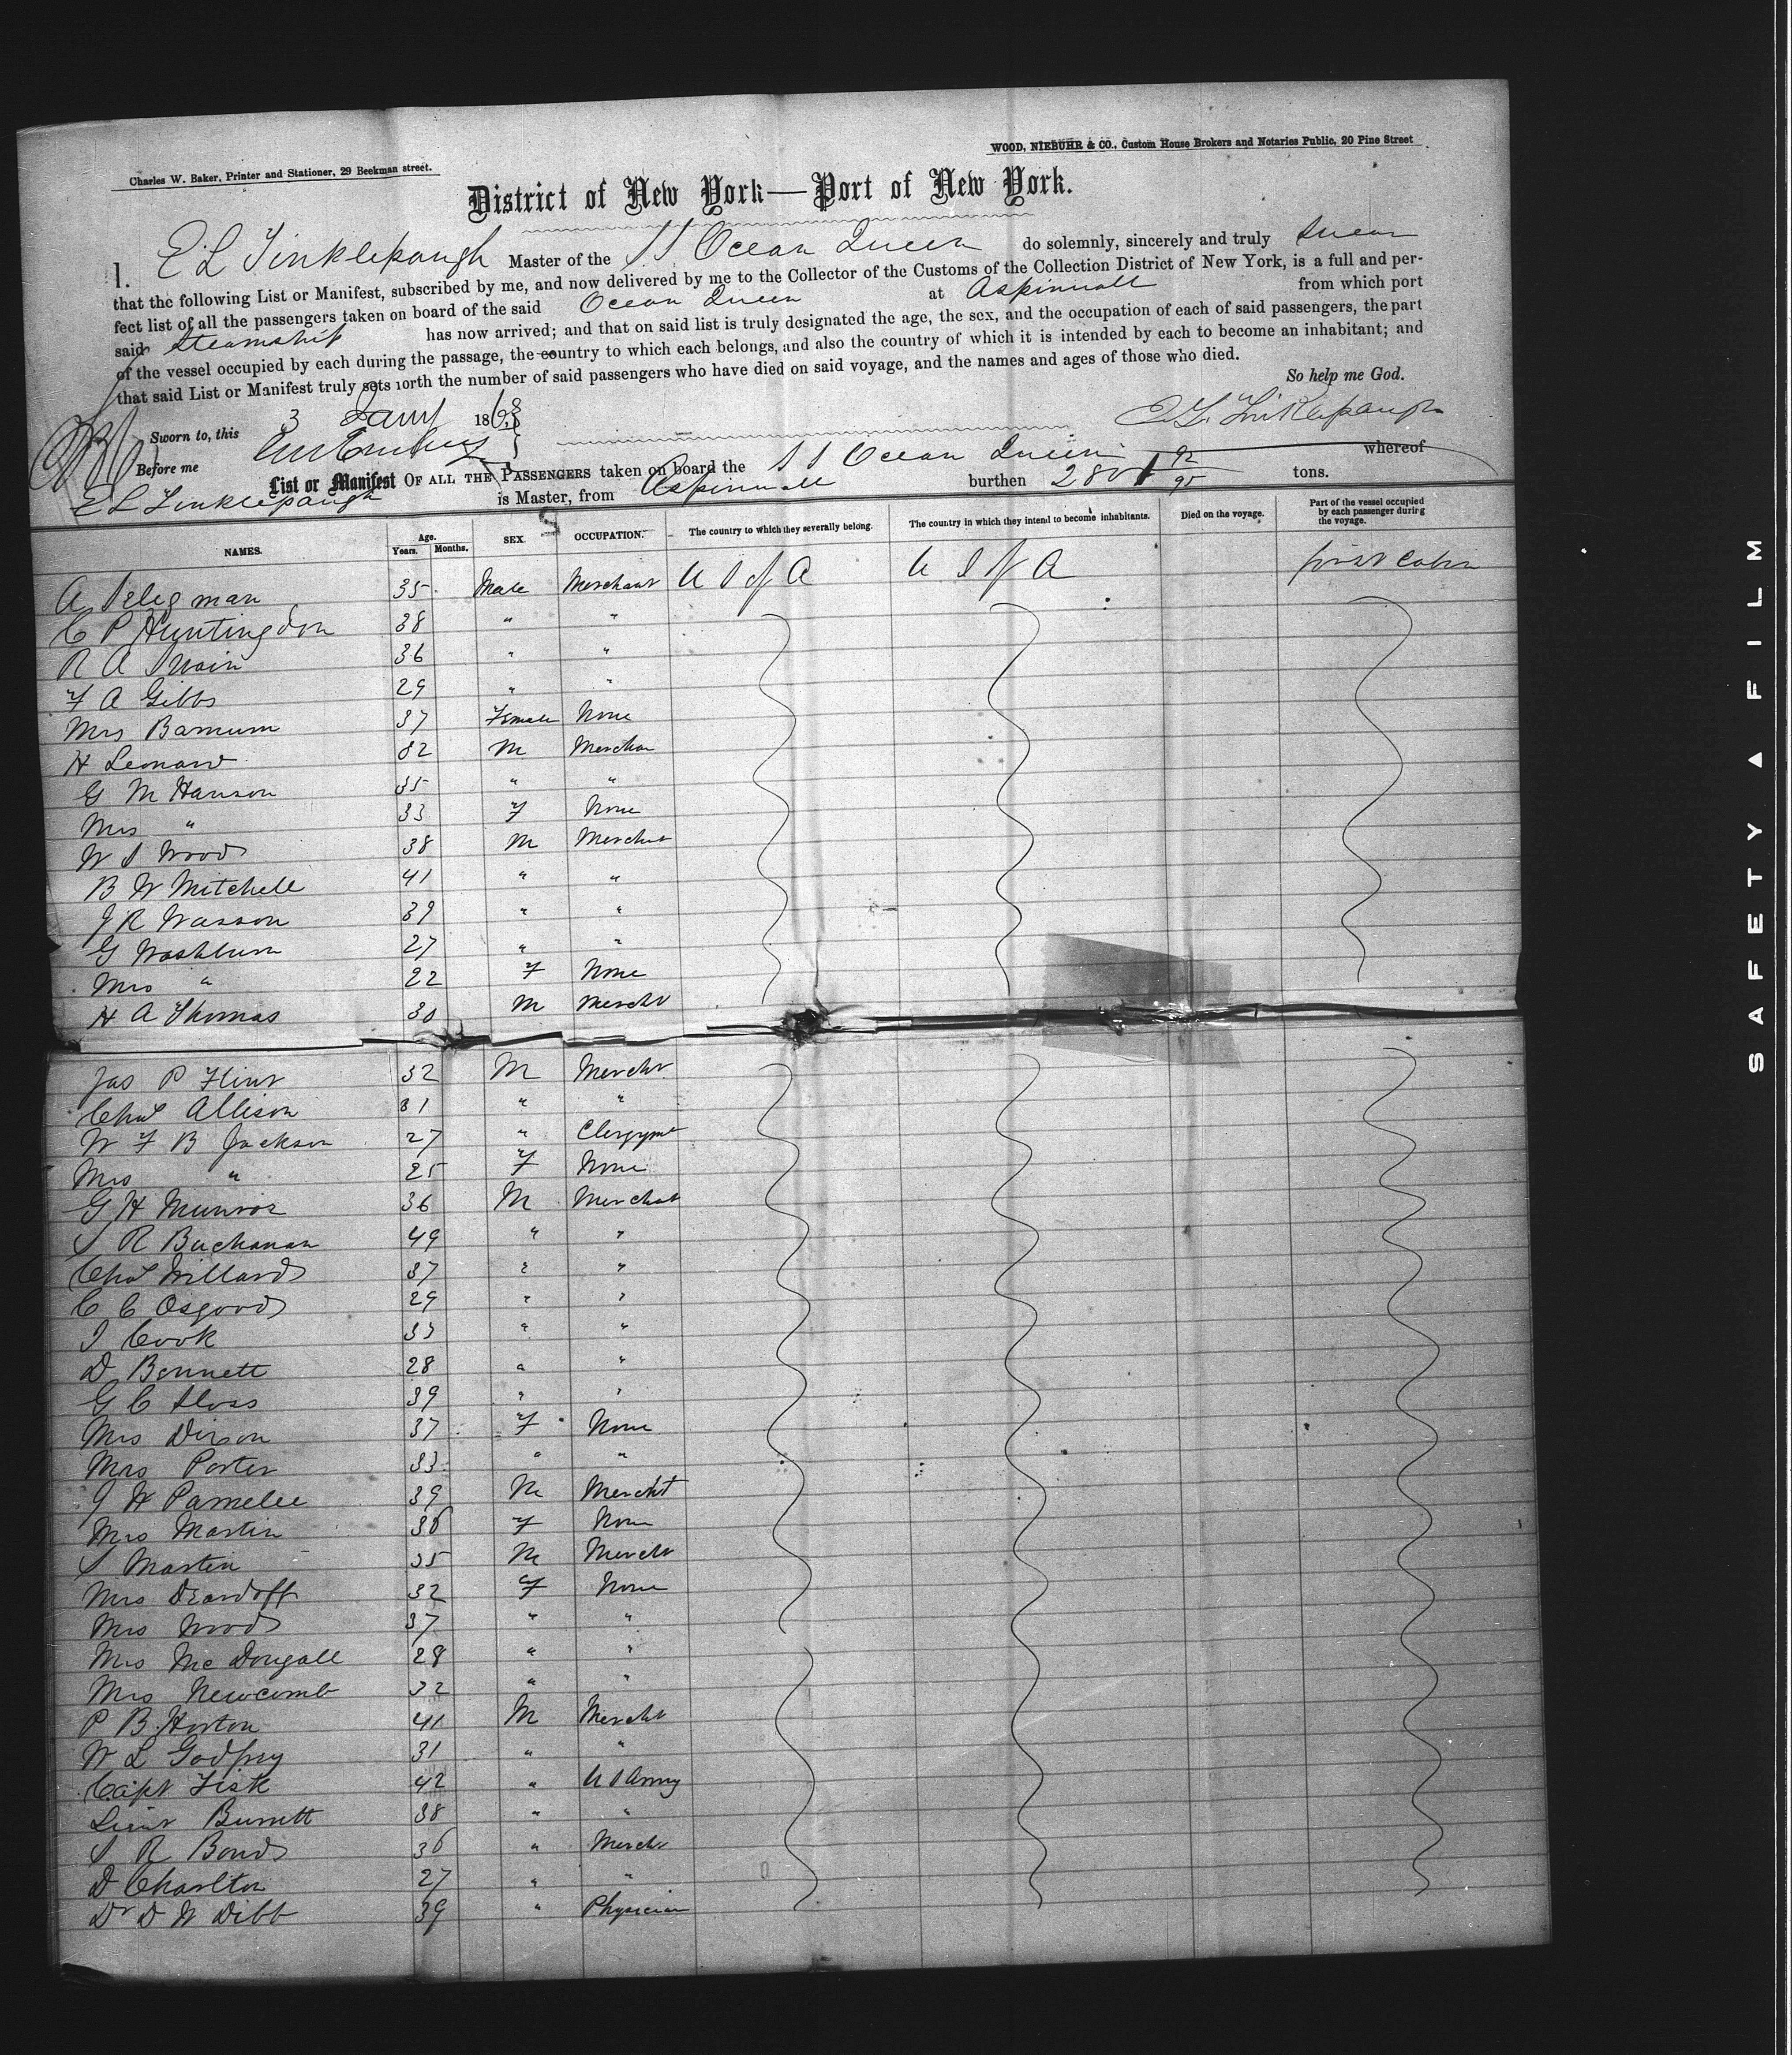 WOOD, NIEBUHR & CO., Custom House Brokers and Notaries Public, 20 Pine Street
Charles W. Baker, Printer and Stationer, 29 Beekman street.
District of New York—Port of New York.
I. E L Tinklepaugh Master of the S S Ocean Queen do solemnly, sincerely and truly swear
that the following List or Manifest, subscribed by me, and now delivered by me to the Collector of the Customs of the Collection District of New York, is a full and per-
fect list of all the passengers taken on board of the said Ocean Queen at Aspinwall from which port
said Steamship has now arrived; and that on said list is truly designated the age, the sex, and the occupation of each of said passengers, the part
of the vessel occupied by each during the passage, the country to which each belongs, and also the country of which it is intended by each to become an inhabitant; and
that said List or Manifest truly sets forth the number of said passengers who have died on said voyage, and the names and ages of those who died.
So help me God.
Sworn to, this 3 Jany 186
E L Tinklepaugh
Before me
List or Manifest OF ALL THE PASSENGERS taken on board the S S Ocean Queen whereof
E L Tinklepaugh is Master, from Aspinwall burthen 2801 92/95 tons.
NAMES. Age. Years. Months. SEX. OCCUPATION. The country to which they severally belong. The country in which they intend to become inhabitants. Died on the voyage. Part of the vessel occupied by each passenger during the voyage.
A Seligman 35 Male Merchant U S of A U S of A first Cabin
C P Huntingdon 38 " "
R A Swain 36 " "
F A Gibbs 29 " "
Mrs Barnum 37 Female None
H Leonard 32 M Merchan
G M Hanson 35 " "
Mrs " 33 F None
W S Wood 38 M Merchat
B W Mitchell 41 " "
J R Wasson 39 " "
G Washburn 27 " "
Mrs " 22 F None
H A Thomas 30 M Mercht
Jas P Flint 32 M Mercht
Chas Allison 31 " "
W F B Jackson 27 " Clergymn
Mrs " 25 F None
G H Munroe 36 M Merchat
S R Buchanan 49 " "
Chas Willard 37 " "
C C Osgood 29 " "
I Cook 33 " "
D Bennett 28 " "
G C Sloss 39 " "
Mrs Dixon 37 F None
Mrs Porter 33 " "
J H Pamelee 39 M Mercht
Mrs Martin 36 F None
S Martin 35 M Mercht
Mrs Deardoff 32 F None
Mrs Wood 37 " "
Mrs Mc Dougall 28 " "
Mrs Newcomb 32 " "
P B Horton 41 M Mercht
W L Godfrey 31 " "
Capt Fisk 42 " U S Army
Lieut Burnett 38 " "
S R Bond 36 " Mercht
D Charlton 27 " "
Dr D W Dibb 39 " Physician
SAFETY ▲ FILM